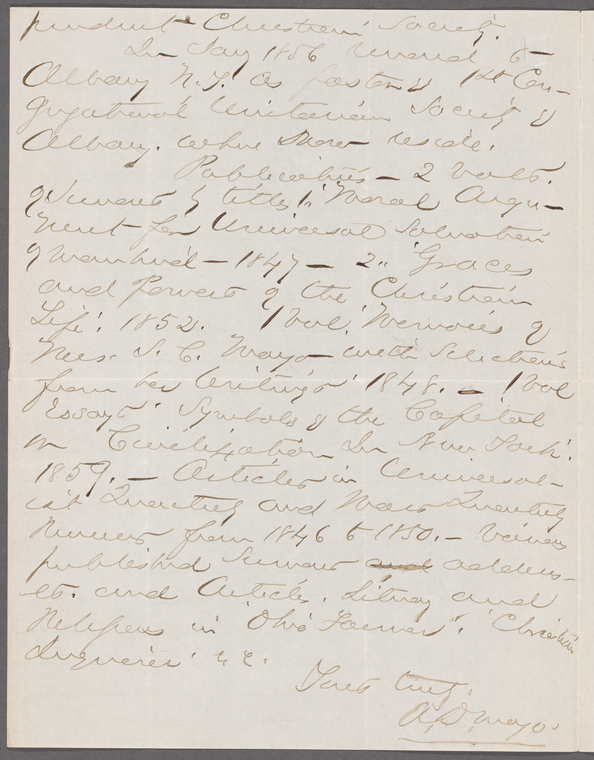 pendent Christian Society.
In Jany 1856 removed to
Albany N.Y. as pastor of 1st Con-
gregational Unitarian Society of
Albany. where now reside.
Publications — 2 vols.
of Sermons by titles 1. "Moral Argu-
ment for Universal Salvation
of mankind — 1847 — 2. "Graces
and Powers of the Christian
Life". 1852. 1 vol. "Memoirs of
Mrs. S. C. Mayo — with Selections
from her Writings" 1848. — 1 vol
Essays "Symbols of the Capital
or Civilization in New York".
1859. — Articles in Universal-
ist Quarterly and Quarterly
from 1846 to 1850. — Various
published Sermons and address-
es. and Articles. Literary and
Religious in "Ohio Farmer". "Christian
Inquirer" &c.
Yours truly.
A. D. Mayo.